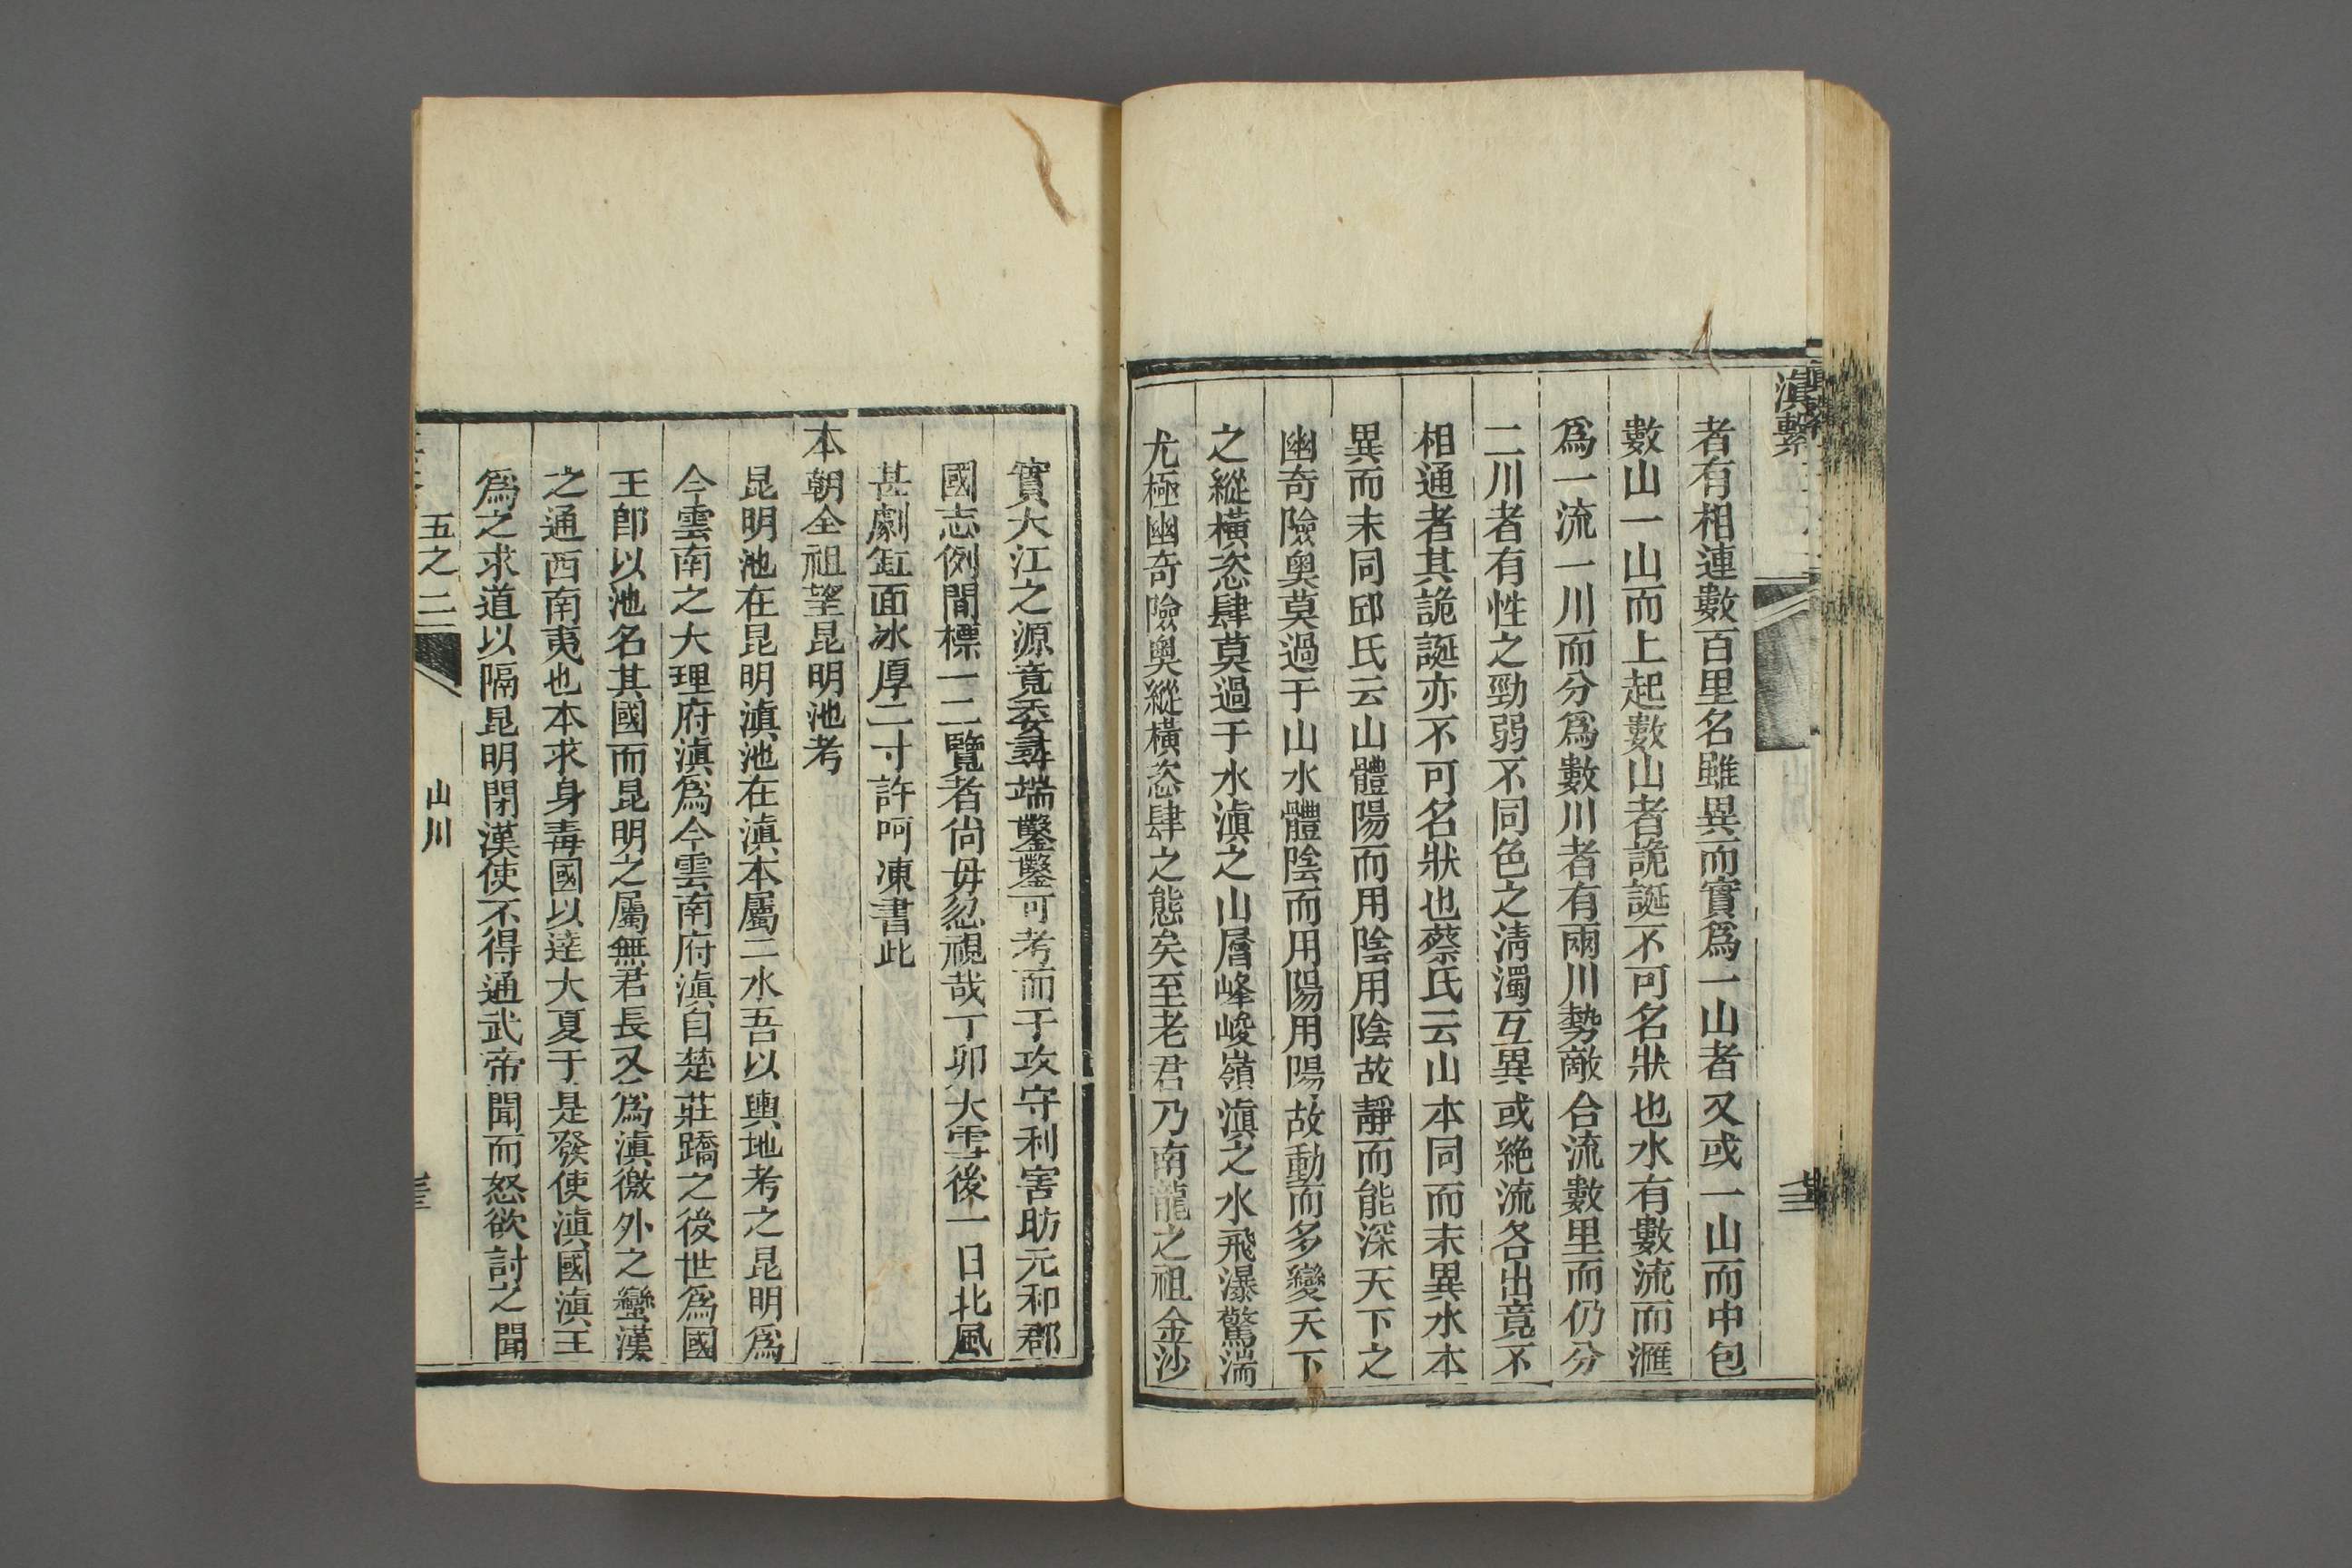 滇繫
者有相連數百里名雖異而實爲一山者又或一山而中包
數山一山而上起數山者詭誕不可名狀也水有數流而滙
爲一流一川而分爲數川者有兩川勢敵合流數里而仍分
二川者有性之勁弱不同色之淸濁互異或絶流各出竟不
相通者其詭誕亦不可名狀也蔡氏云山本同而末異水本
異而末同邱氏云山體陽而用陰用陰故靜而能深天下之
幽奇險奧莫過于山水體陰而用陽用陽故動而多變天下
之縱橫恣肆莫過于水滇之山層峰峻嶺滇之水飛瀑驚湍
尤極幽奇險奧縱橫恣肆之態矣至老君乃南龍之祖金沙
實大江之源竟委尋端鑿鑿可考而于攻守利害昉元和郡
國志例間標一二覽者尙毋忽視哉丁卯大雪後一日北風
甚劇缸面冰厚二寸許呵凍書此
本朝全祖望昆明池考
昆明池在昆明滇池在滇本屬二水吾以輿地考之昆明爲
今雲南之大理府滇爲今雲南府滇自楚莊蹻之後世爲國
王卽以池名其國而昆明之屬無君長又爲滇徼外之蠻漢
之通西南夷也本求身毒國以達大夏于是發使滇國滇王
爲之求道以隔昆明閉漢使不得通武帝聞而怒欲討之聞
五之二
山川